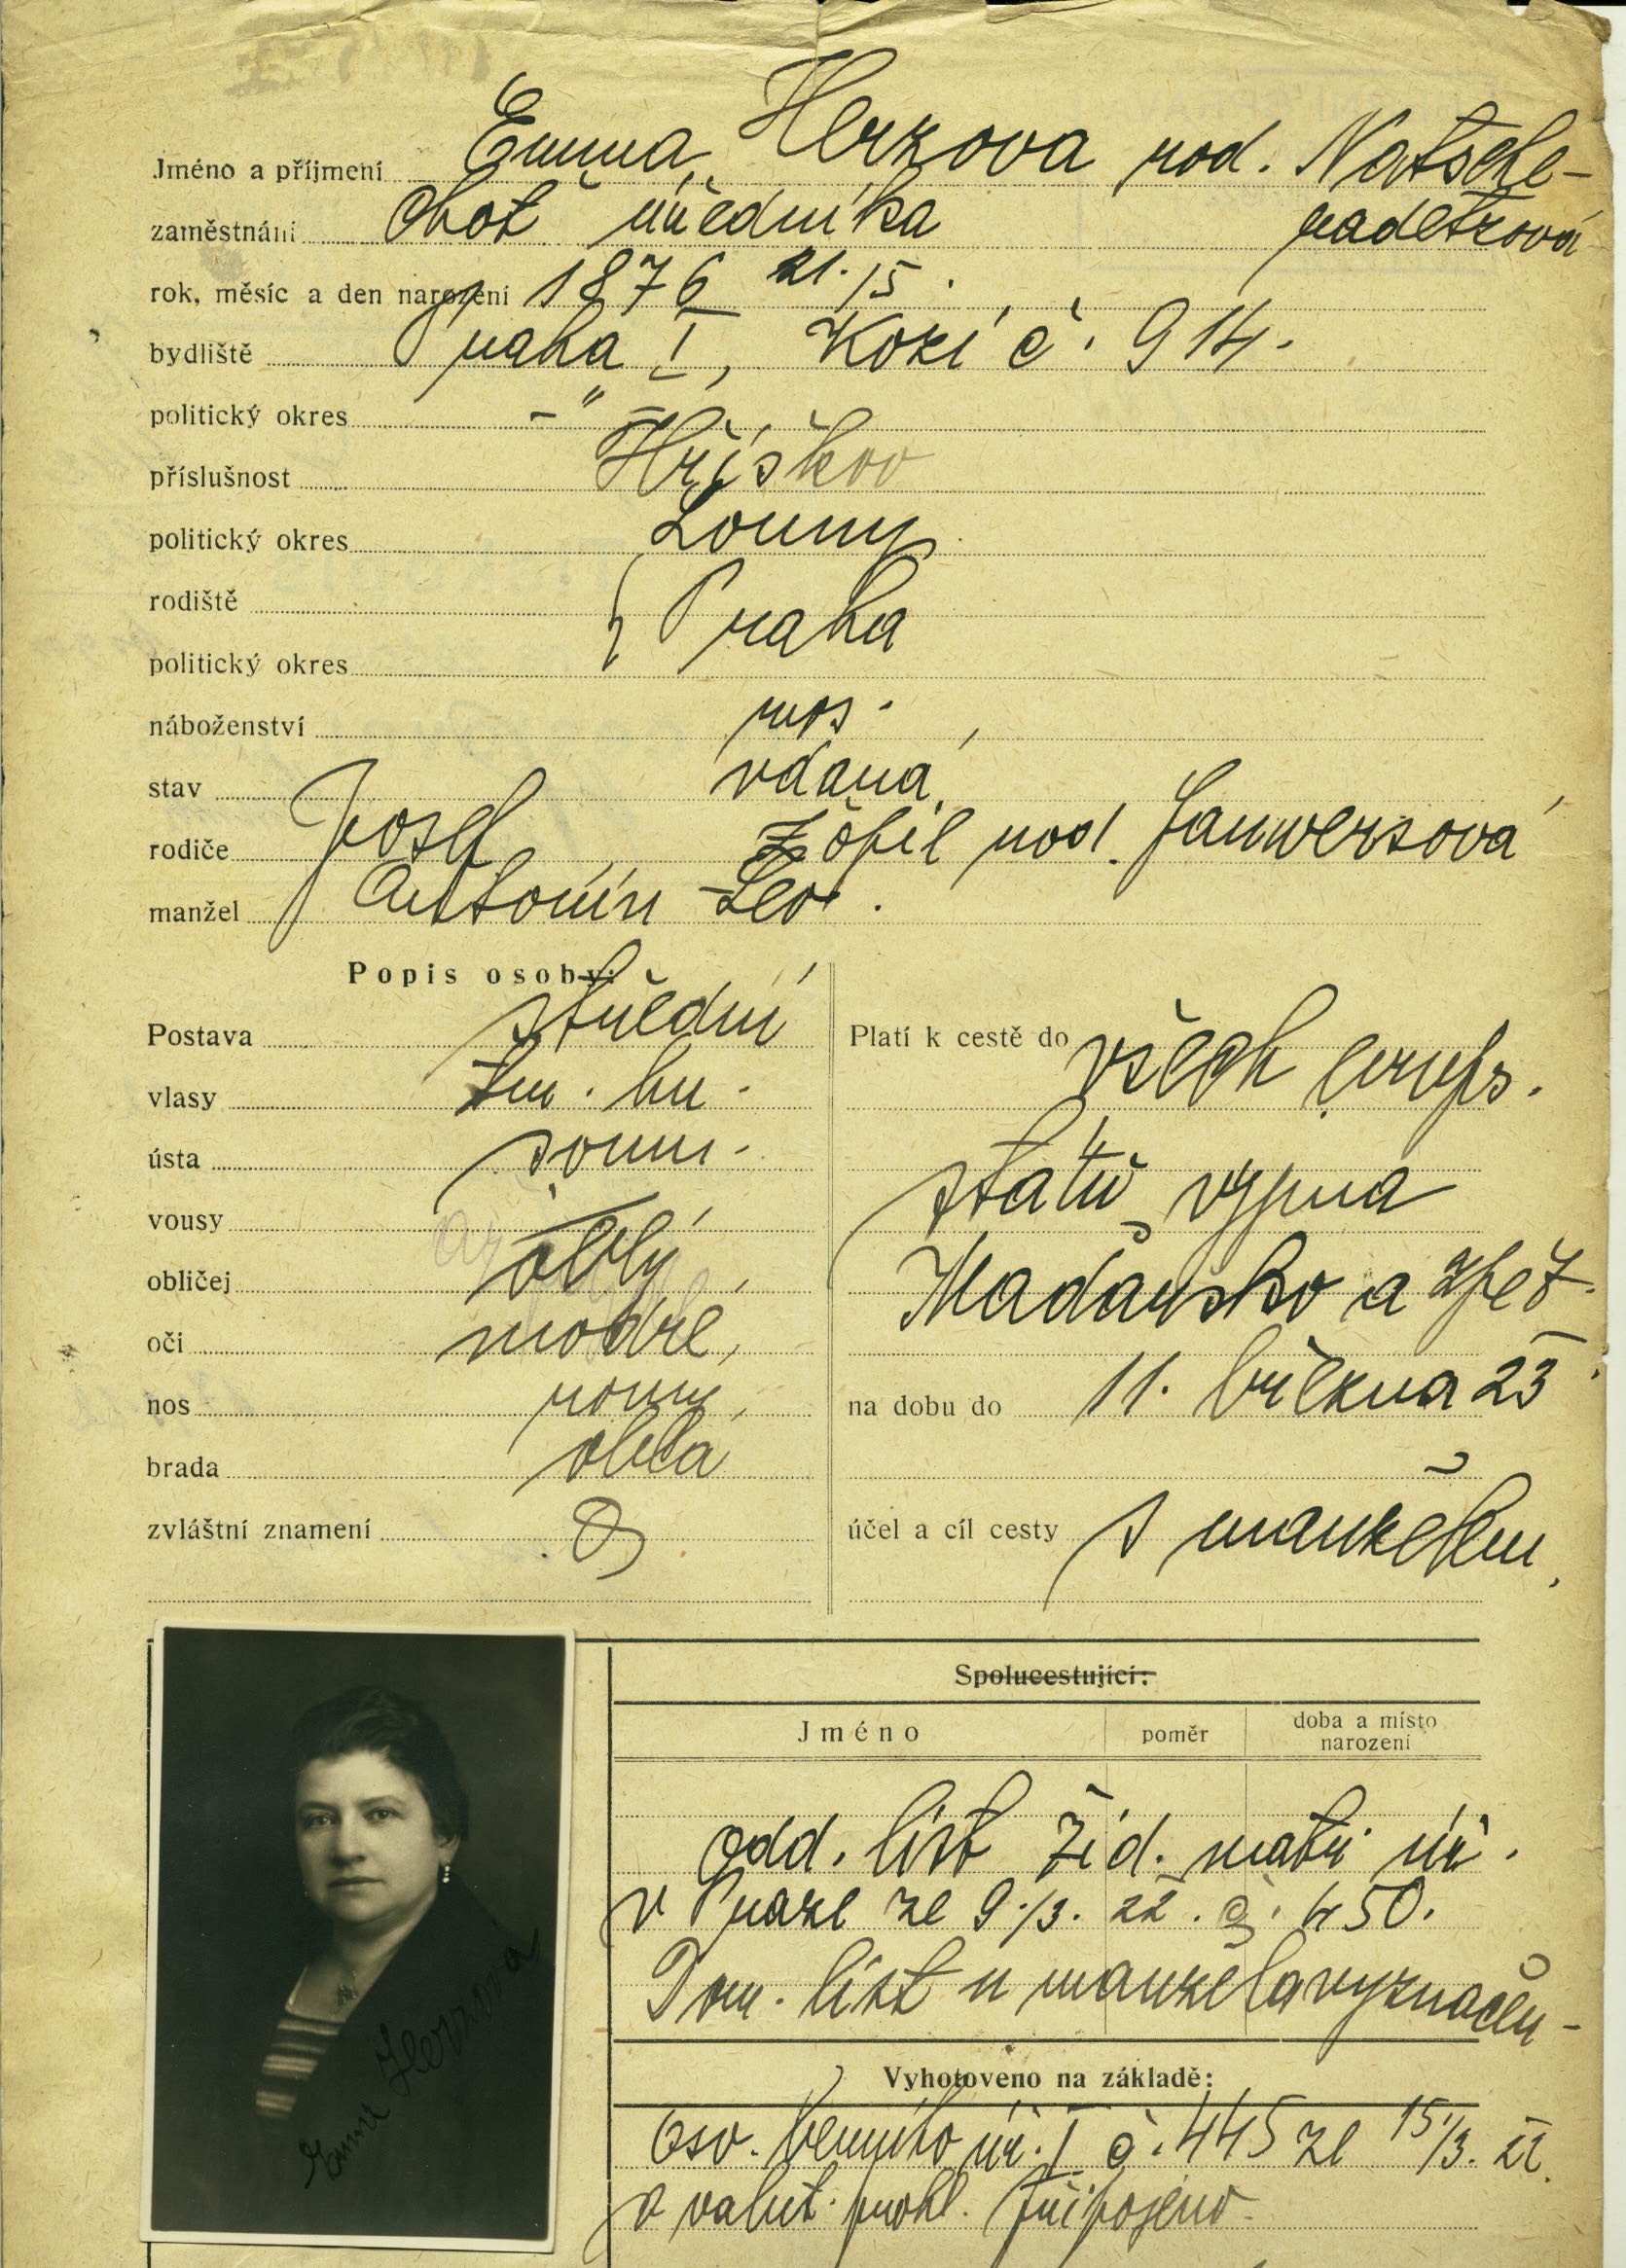 Jméno a příjmení Emma Herzova rod. Natsche-
zaměstnání Choť úředníka radetzová
rok, měsíc a den narození 1876 21./5.
bydliště Praha I, Kozí č. 914.
politický okres - " -
příslušnost Hříškov
politický okres Louny
rodiště Praha
politický okres
náboženství mos.
stav vdaná
rodiče Josef Žofie rod.
manžel Leo
Popis osoby:
Postava střední Platí k cestě do všech evrops.
vlasy tm. hn.
ústa soum. států vyjma
vousy —
obličej oblý Maďarsko a zpět.
oči modré
nos rovný na dobu do 11. března 23
brada oblá
zvláštní znamení účel a cíl cesty s manželem
Spolucestující:
Jméno poměr doba a místo narození
odd. list žid. matr. úř.
v Praze ze 9./3. 22. č. 450.
Dom. list u manžela vyznačen
Vyhotoveno na základě:
osv. berního úř. I č. 445 ze 15./3. 22.
a valut. prohl. připojeno.
Emma Herzová